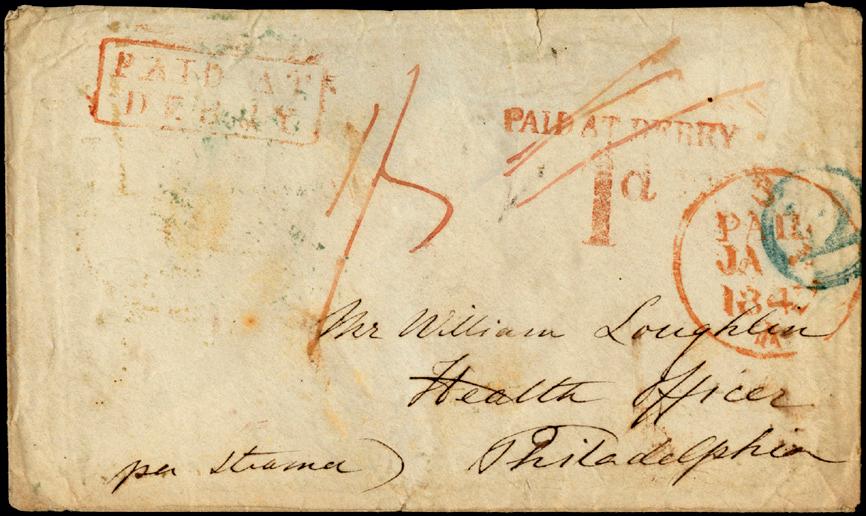 PAID AT
DERRY
1/
PAID AT DERRY
1d
3
PAID
JA
1847
2
Mr William Loughlin
Health Officer
Philadelphia
per steamer)